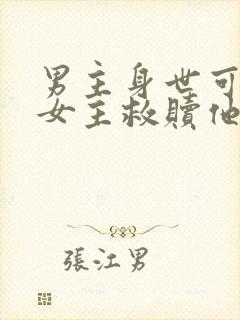 男主身世可
女主救贖他
張江男